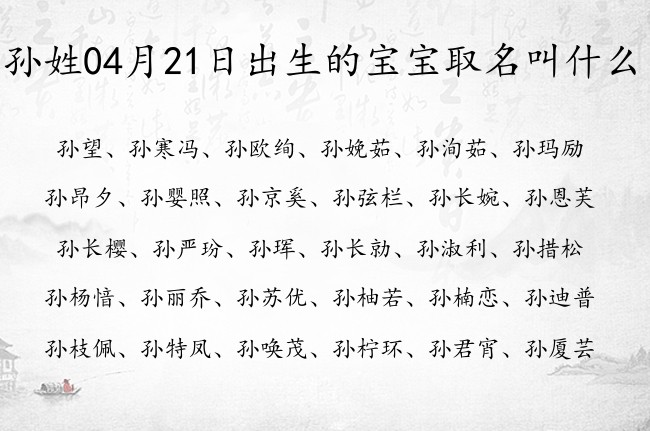 孙姓04月21日出生的宝宝取名叫什么
孙望、孙寒冯、孙欧绚、孙娩茹、孙洵茹、孙玛励
孙昂夕、孙婴照、孙京奚、孙弦栏、孙长婉、孙恩芙
孙长樱、孙严玢、孙珲、孙长勍、孙淑利、孙措松
孙杨愔、孙丽乔、孙苏优、孙柚若、孙楠恋、孙迪普
孙枝佩、孙特凤、孙唤茂、孙柠环、孙君宵、孙厦芸